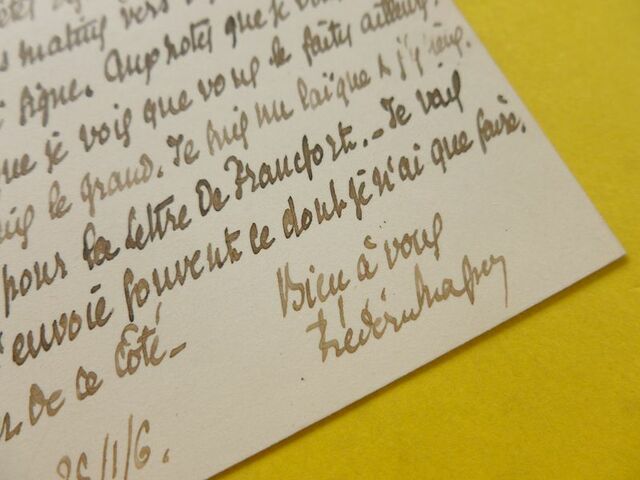 matins vers
ligne. que je
que je vois que vous le faites ailleurs.
le grand. Je suis un laïque & j'y tiens.
pour la lettre de Francfort. - Je vois
envoie souvent ce dont je n'ai que faire.
de ce Côté -
Bien à vous
Frédéric Masson
25/1/6.